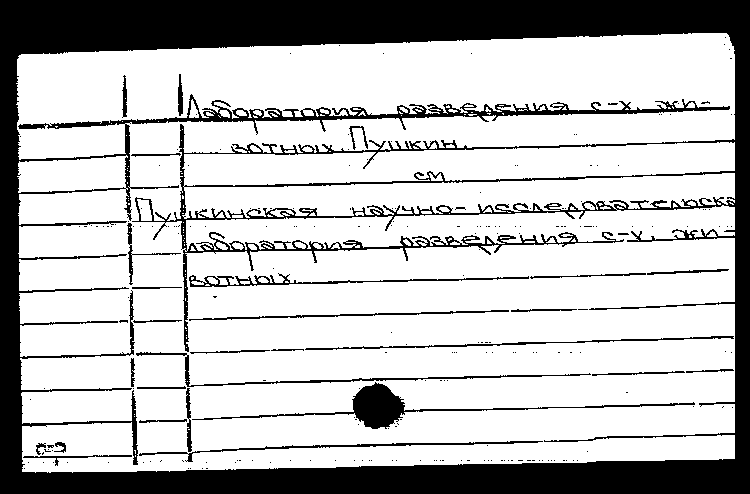 Лаборатория разведения с-х. жи-
вотных. Пушкин.
см
Пушкинская научно-исследовательска
лаборатория разведения с-х. жи-
вотных.